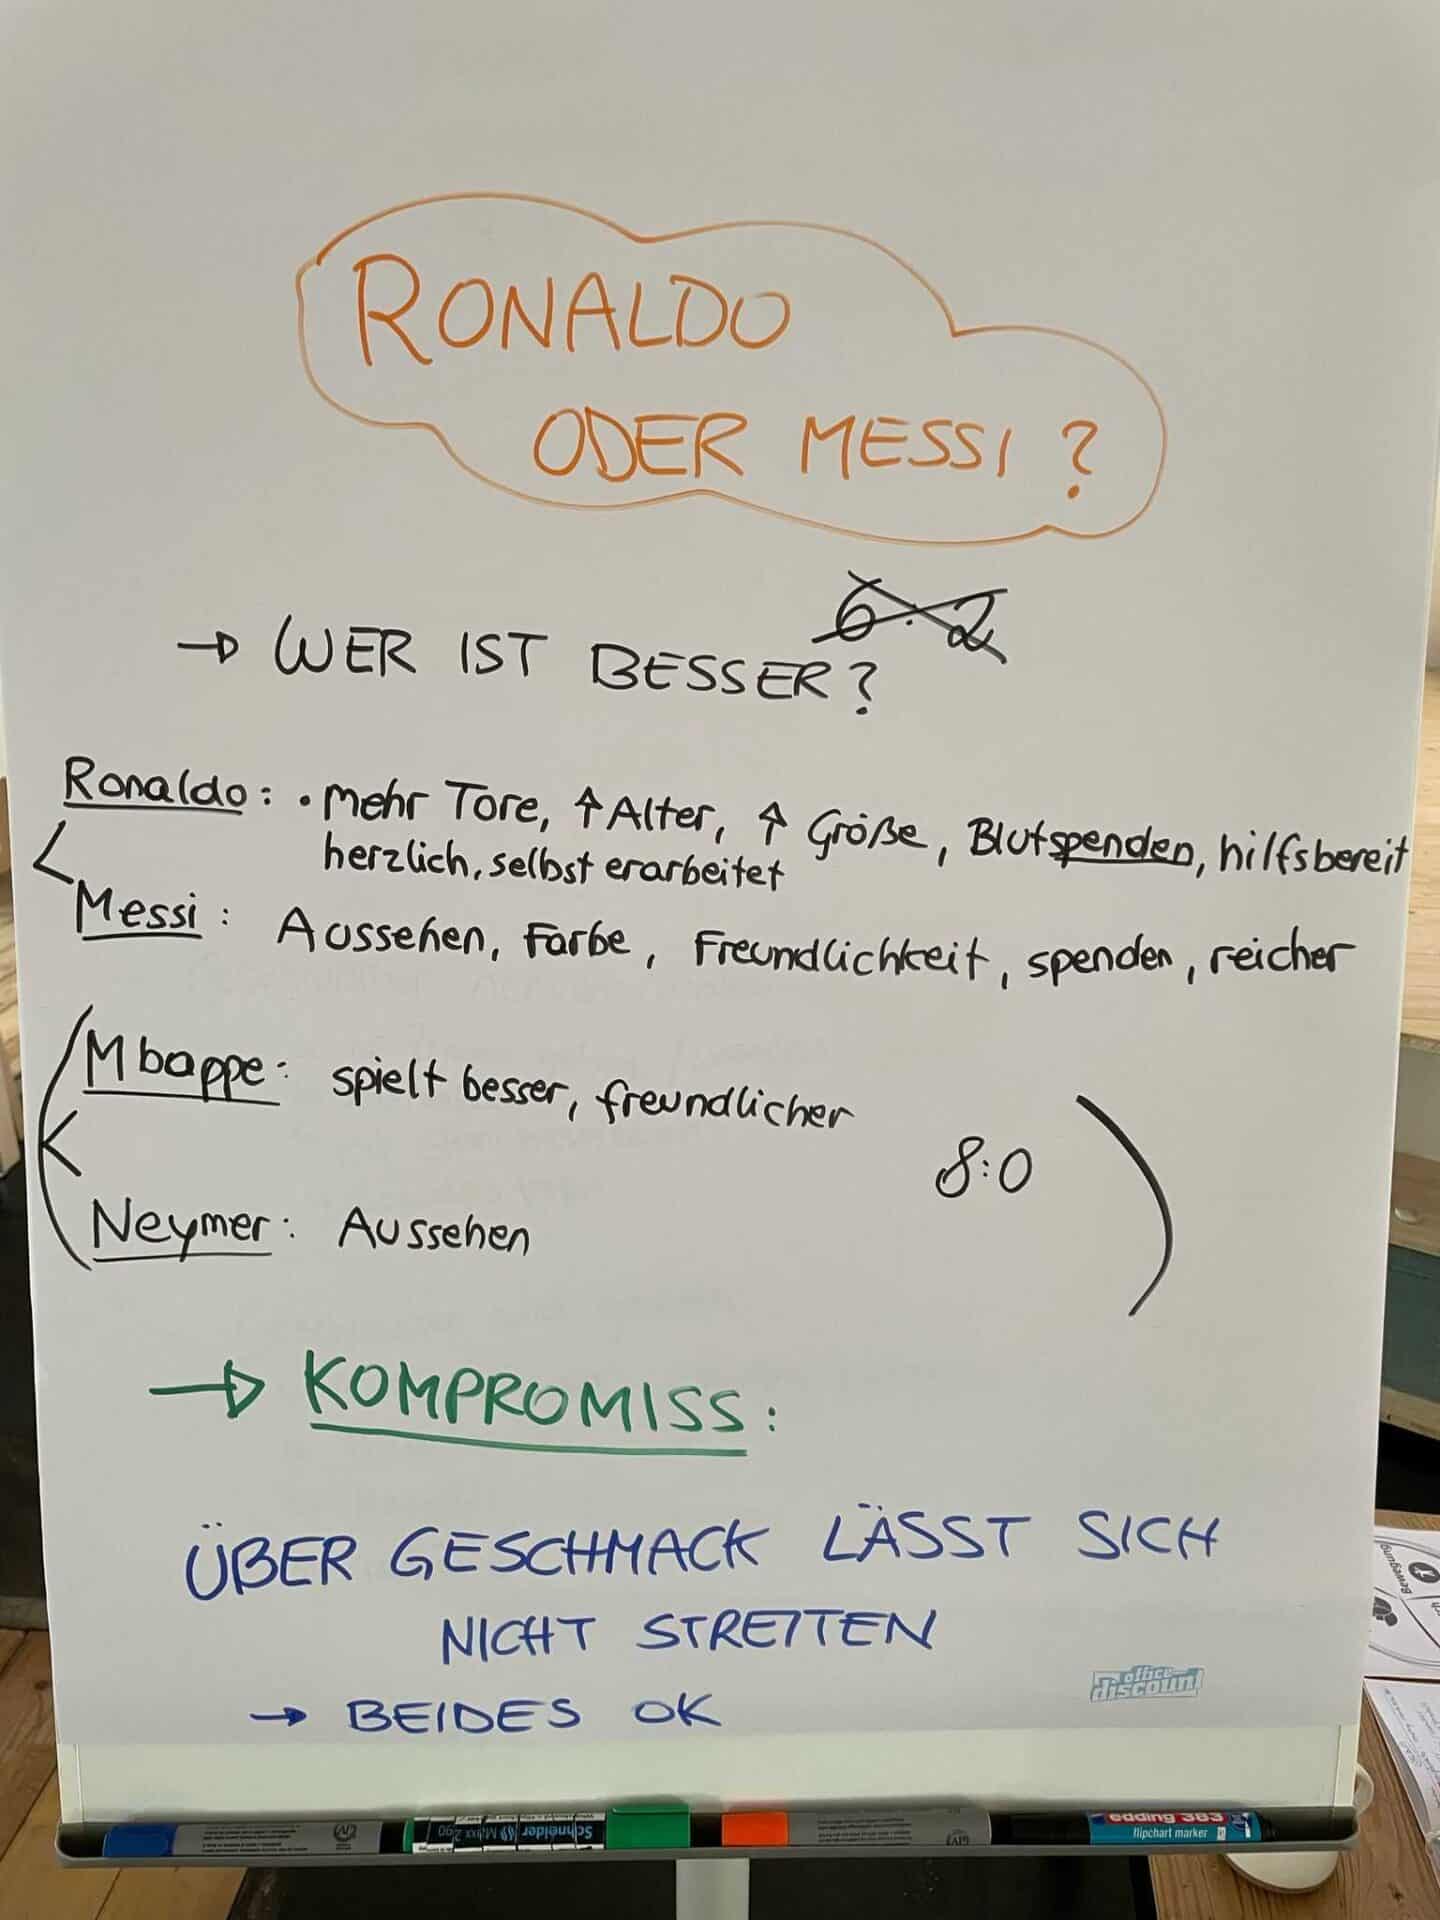 RONALDO
ODER MESSI?
6:2
→ WER IST BESSER?
Ronaldo: • mehr Tore, ↑ Alter, ↑ Größe, Blutspenden, hilfsbereit
herzlich, selbst erarbeitet
Messi: Aussehen, Farbe, Freundlichkeit, spenden, reicher
Mbappe: spielt besser, freundlicher
8:0
Neymer: Aussehen
→ KOMPROMISS:
ÜBER GESCHMACK LÄSST SICH
NICHT STREITEN
→ BEIDES OK
office
discount
Bewegung
Schneider Maxx 290
edding 383
flipchart marker